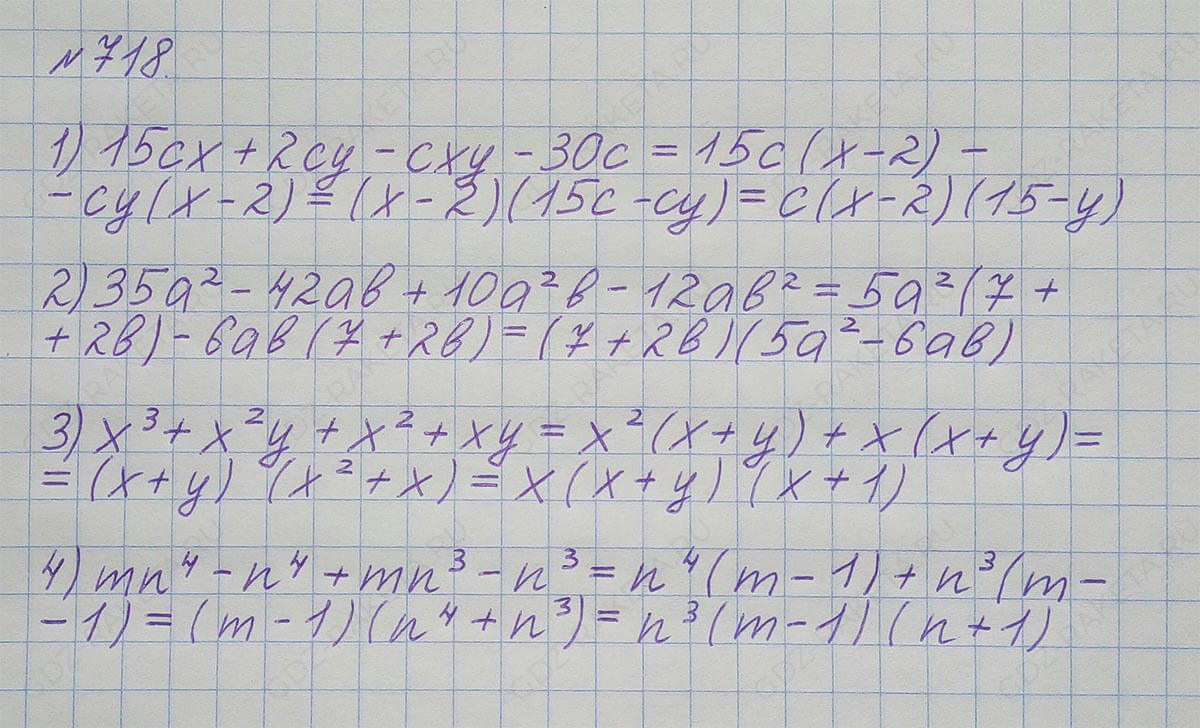 №718.
1) 15cx + 2cy - cxy - 30c = 15c(x-2) -
- cy(x-2) = (x-2)(15c-cy) = c(x-2)(15-y)
2) 35a² - 42ab + 10a²b - 12ab² = 5a²(7 +
+ 2b) - 6ab(7+2b) = (7+2b)(5a²-6ab)
3) x³ + x²y + x² + xy = x²(x+y) + x(x+y) =
= (x+y) (x²+x) = x(x+y) (x+1)
4) mn⁴ - n⁴ + mn³ - n³ = n⁴(m-1) + n³(m-
-1) = (m-1)(n⁴+n³) = n³(m-1)(n+1)
GDZ-RAKETA.RU